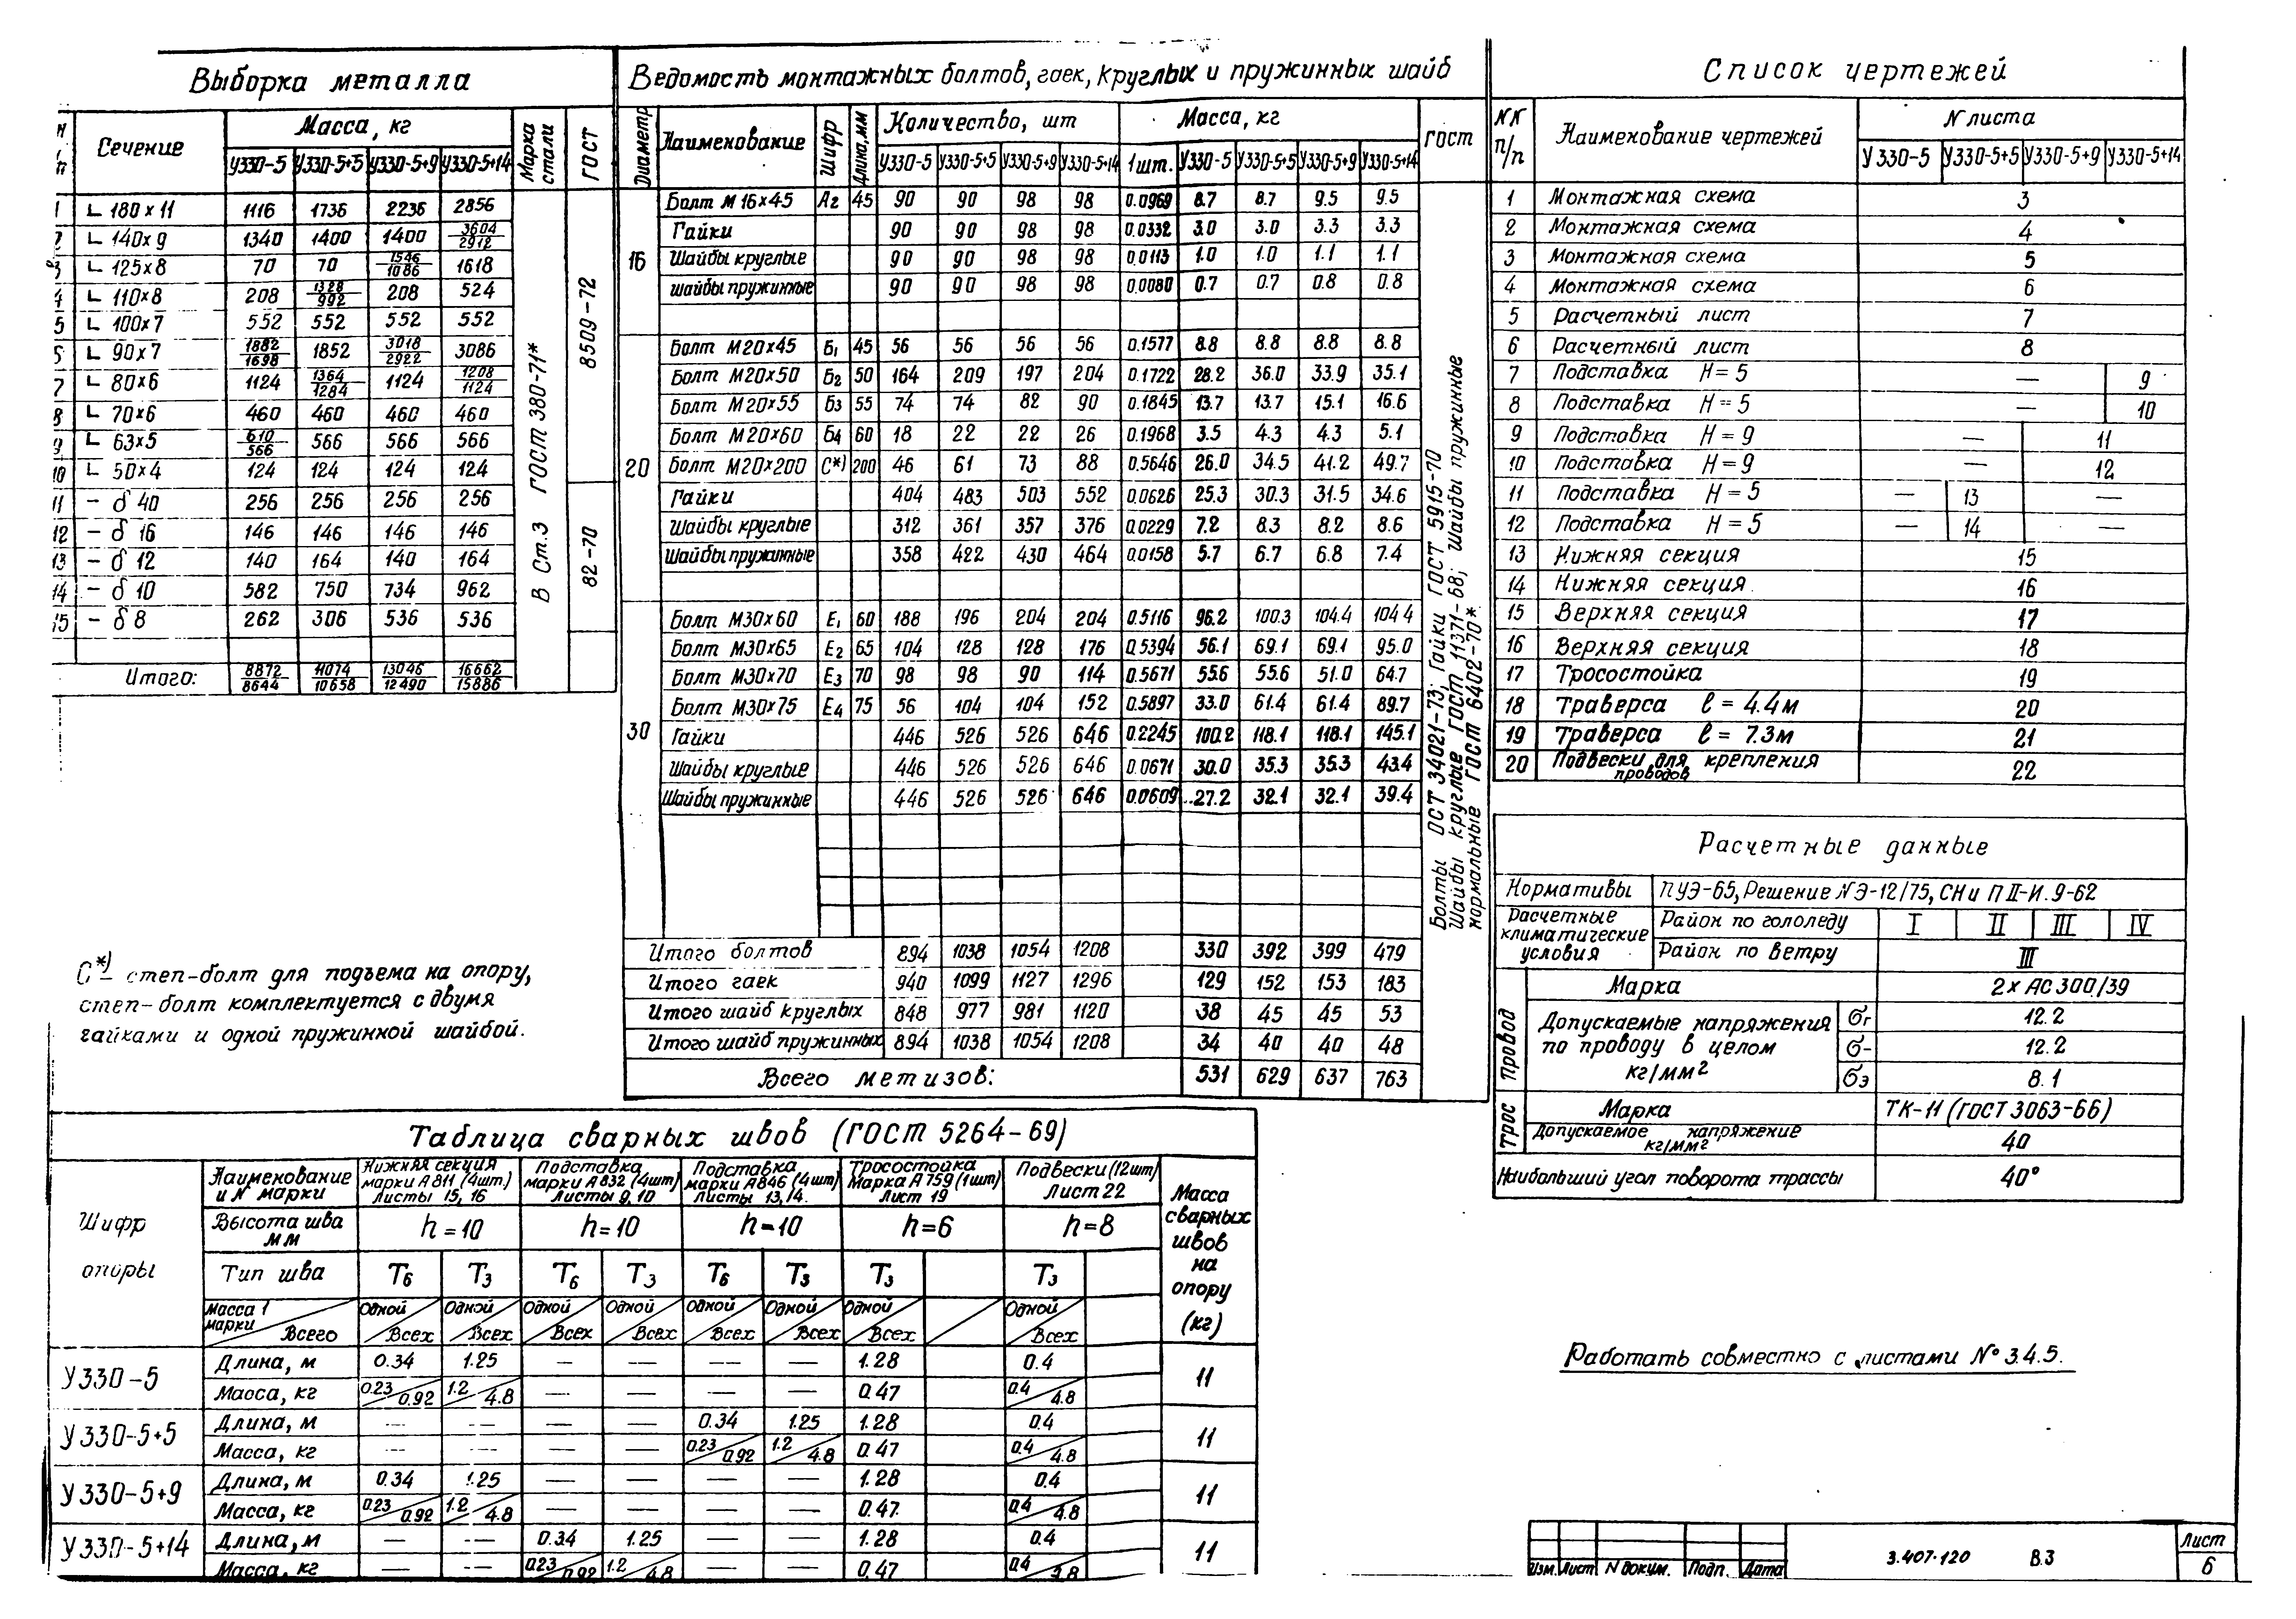 Выборка металла
№ п/п Сечение Масса, кг Марка стали ГОСТ
У330-5 У330-5+5 У330-5+9 У330-5+14
1 ∟ 180×11 1116 1736 2236 2856
2 ∟ 140×9 1340 1400 1400 3604/2912
3 ∟ 125×8 70 70 1546/1086 1618
4 ∟ 110×8 208 1328/992 208 524
5 ∟ 100×7 552 552 552 552
5 ∟ 90×7 1882/1698 1852 3018/2922 3086
7 ∟ 80×6 1124 1364/1284 1124 1208/1124
8 ∟ 70×6 460 460 460 460
9 ∟ 63×5 610/566 566 566 566
10 ∟ 50×4 124 124 124 124
11 – δ 40 256 256 256 256
12 – δ 16 146 146 146 146
13 – δ 12 140 164 140 164
14 – δ 10 582 750 734 962
15 – δ 8 262 306 536 536
Итого: 8872/8644 11074/10658 13046/12490 16662/15886
В Ст.3 ГОСТ 380-71*
8509-72
82-70
С*)– степ-болт для подъема на опору,
степ-болт комплектуется с двумя
гайками и одной пружинной шайбой.
Ведомость монтажных болтов, гаек, круглых и пружинных шайб
Диаметр Наименование Шифр Длина, мм Количество, шт Масса, кг ГОСТ
У330-5 У330-5+5 У330-5+9 У330-5+14 1шт. У330-5 У330-5+5 У330-5+9 У330-5+14
16
Болт М16×45 А2 45 90 90 98 98 0.0969 8.7 8.7 9.5 9.5
Гайки 90 90 98 98 0.0332 3.0 3.0 3.3 3.3
Шайбы круглые 90 90 98 98 0.0113 1.0 1.0 1.1 1.1
шайбы пружинные 90 90 98 98 0.0080 0.7 0.7 0.8 0.8
20
Болт М20×45 Б1 45 56 56 56 56 0.1577 8.8 8.8 8.8 8.8
Болт М20×50 Б2 50 164 209 197 204 0.1722 28.2 36.0 33.9 35.1
Болт М20×55 Б3 55 74 74 82 90 0.1845 13.7 13.7 15.1 16.6
Болт М20×60 Б4 60 18 22 22 26 0.1968 3.5 4.3 4.3 5.1
Болт М20×200 С*) 200 46 61 73 88 0.5646 26.0 34.5 41.2 49.7
Гайки 404 483 503 552 0.0626 25.3 30.3 31.5 34.6
Шайбы круглые 312 361 357 376 0.0229 7.2 8.3 8.2 8.6
Шайбы пружинные 358 422 430 464 0.0158 5.7 6.7 6.8 7.4
30
Болт М30×60 Е1 60 188 196 204 204 0.5116 96.2 100.3 104.4 104.4
Болт М30×65 Е2 65 104 128 128 176 0.5394 56.1 69.1 69.1 95.0
Болт М30×70 Е3 70 98 98 90 114 0.5671 55.6 55.6 51.0 64.7
Болт М30×75 Е4 75 56 104 104 152 0.5897 33.0 61.4 61.4 89.7
Гайки 446 526 526 646 0.2245 100.2 118.1 118.1 145.1
Шайбы круглые 446 526 526 646 0.0671 30.0 35.3 35.3 43.4
Шайбы пружинные 446 526 526 646 0.0609 27.2 32.1 32.1 39.4
Итого болтов 894 1038 1054 1208 330 392 399 479
Итого гаек 940 1099 1127 1296 129 152 153 183
Итого шайб круглых 848 977 981 1120 38 45 45 53
Итого шайб пружинных 894 1038 1054 1208 34 40 40 48
Всего метизов: 531 629 637 763
Болты ОСТ 34021-73; Гайки ГОСТ 5915-70
Шайбы круглые ГОСТ 11371-68; Шайбы пружинные
нормальные ГОСТ 6402-70*
Список чертежей
NN п/п Наименование чертежей N листа
У330-5 У330-5+5 У330-5+9 У330-5+14
1 Монтажная схема 3
2 Монтажная схема 4
3 Монтажная схема 5
4 Монтажная схема 6
5 Расчетный лист 7
6 Расчетный лист 8
7 Подставка Н=5 — 9
8 Подставка Н=5 — 10
9 Подставка Н=9 — 11
10 Подставка Н=9 — 12
11 Подставка Н=5 — 13 —
12 Подставка Н=5 — 14 —
13 Нижняя секция 15
14 Нижняя секция 16
15 Верхняя секция 17
16 Верхняя секция 18
17 Тросостойка 19
18 Траверса ℓ=4.4м 20
19 Траверса ℓ=7.3м 21
20 Подвески для крепления проводов 22
Расчетные данные
Нормативы ПУЭ-65, Решение NЭ-12/75, СНиП II-И.9-62
Расчетные климатические условия Район по гололеду I II III IV
Район по ветру III
Провод Марка 2×АС300/39
Допускаемые напряжения по проводу в целом кг/мм2 σг 12.2
σ- 12.2
σэ 8.1
Трос Марка ТК-11 (ГОСТ 3063-66)
Допускаемое напряжение кг/мм2 40
Наибольший угол поворота трассы 40°
Таблица сварных швов (ГОСТ 5264-69)
Шифр опоры
Наименование и N марки
Нижняя секция марки А811 (4шт.) Листы 15, 16
Подставка марки А832 (4шт) Листы 9, 10
Подставка марки А846 (4шт) Листы 13,14.
Тросостойка Марка А759 (1шт) Лист 19
Подвески (12шт) Лист 22
Масса сварных швов на опору (кг)
Высота шва мм h=10 h=10 h=10 h=6 h=8
Тип шва Т6 Т3 Т6 Т3 Т6 Т3 Т3 Т3
Масса 1 марки / Всего Одной/Всех Одной/Всех Одной/Всех Одной/Всех Одной/Всех Одной/Всех Одной/Всех Одной/Всех
У330-5 Длина, м 0.34 1.25 — — — — 1.28 0.4 11
Масса, кг 0.23/0.92 1.2/4.8 — — — — 0.47 0.4/4.8
У330-5+5 Длина, м — — — — 0.34 1.25 1.28 0.4 11
Масса, кг — — — — 0.23/0.92 1.2/4.8 0.47 0.4/4.8
У330-5+9 Длина, м 0.34 1.25 — — — — 1.28 0.4 11
Масса, кг 0.23/0.92 1.2/4.8 — — — — 0.47 0.4/4.8
У330-5+14 Длина, м — — 0.34 1.25 — — 1.28 0.4 11
Масса, кг — — 0.23/0.92 1.2/4.8 — — 0.47 0.4/4.8
Работать совместно с листами N° 3.4.5.
Изм. Лист N докум. Подп. Дата
3.407-120 В.3
Лист
6